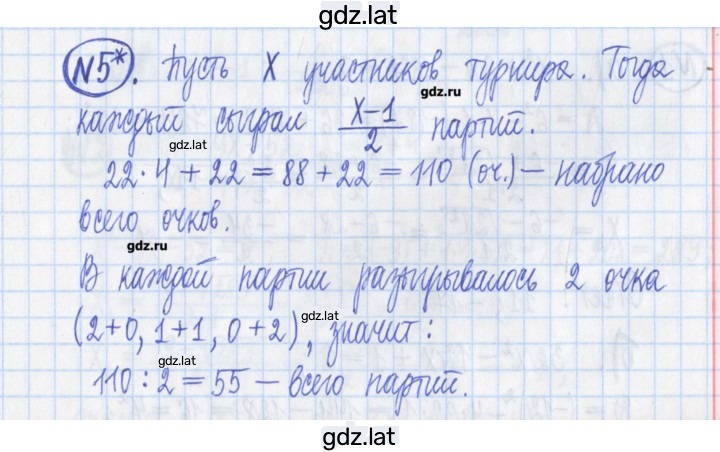 gdz.lat
№5*. Пусть X участников турнира. Тогда
gdz.ru
каждый сыграл (X-1)/2 партий.
gdz.lat
22·4+22=88+22=110 (оч.) – набрано
всего очков.
gdz.ru
В каждой партии разыгрывалось 2 очка
(2+0, 1+1, 0+2), значит:
gdz.lat
gdz.lat
110:2=55 – всего партий.
gdz.lat